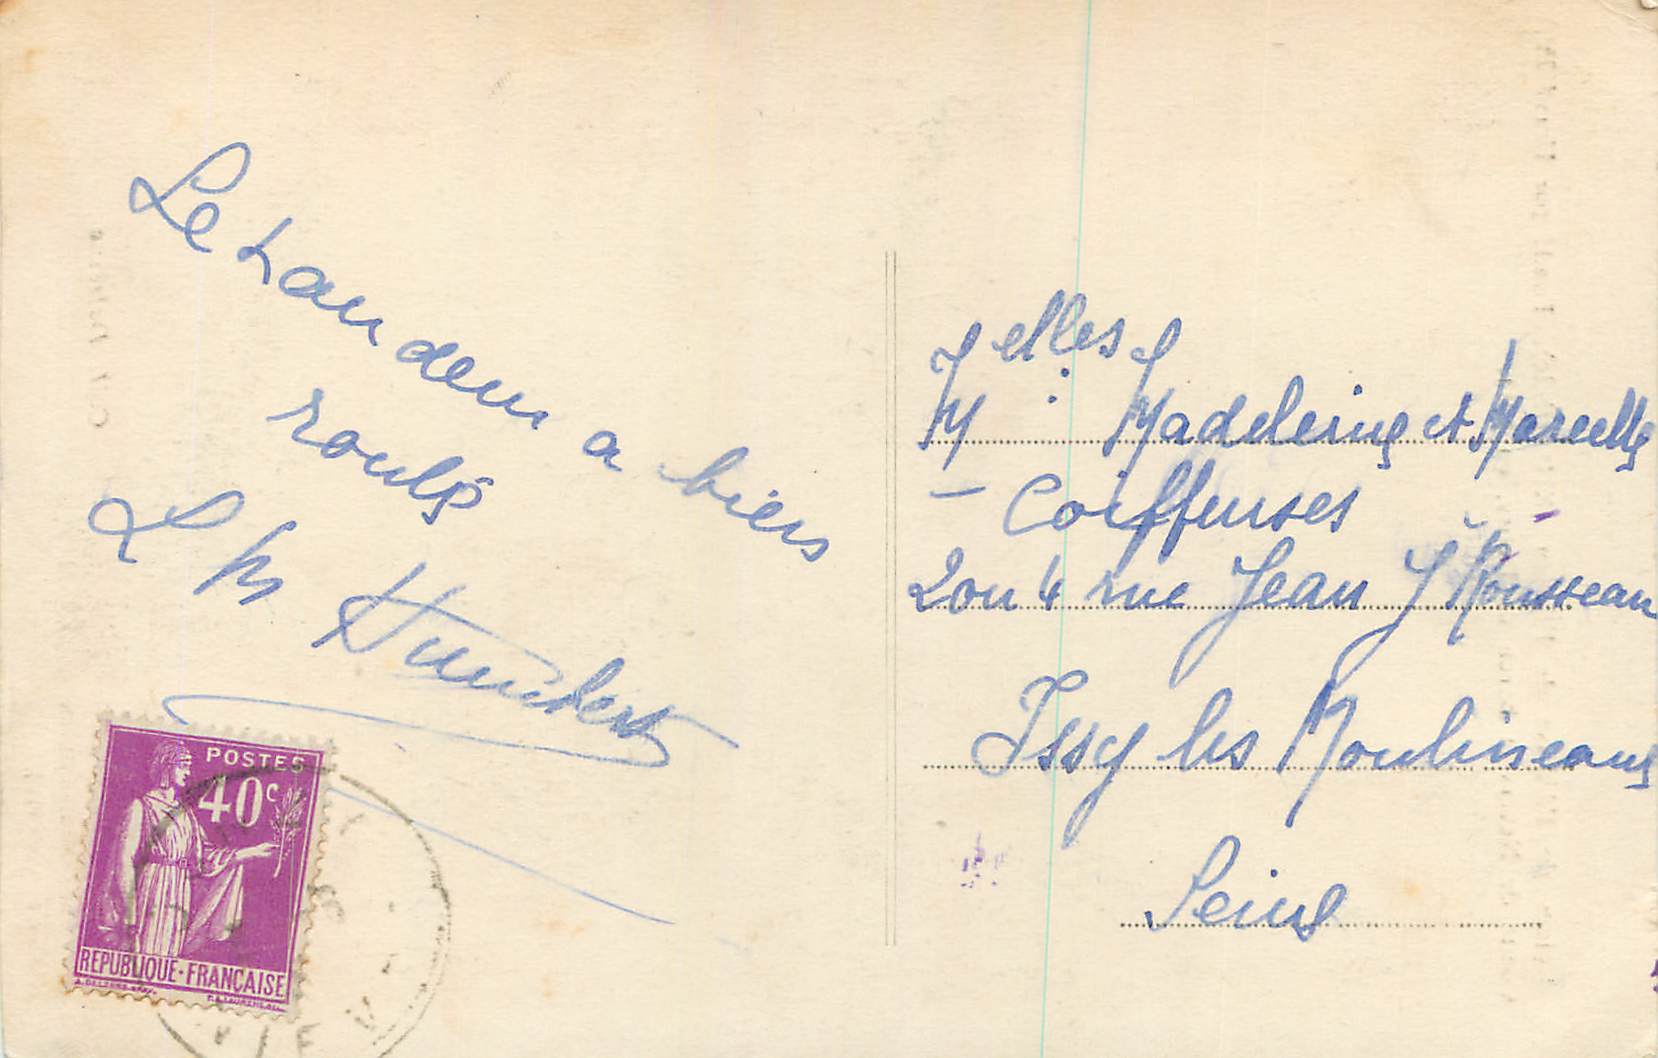 Le tandem a bien
roulé
Humbert
POSTES
40c
REPUBLIQUE·FRANÇAISE
Melles Madeleine et Marcelle
— Coiffeuses
2 ou 4 rue Jean J Rousseau
Issy les Moulineaux
Seine